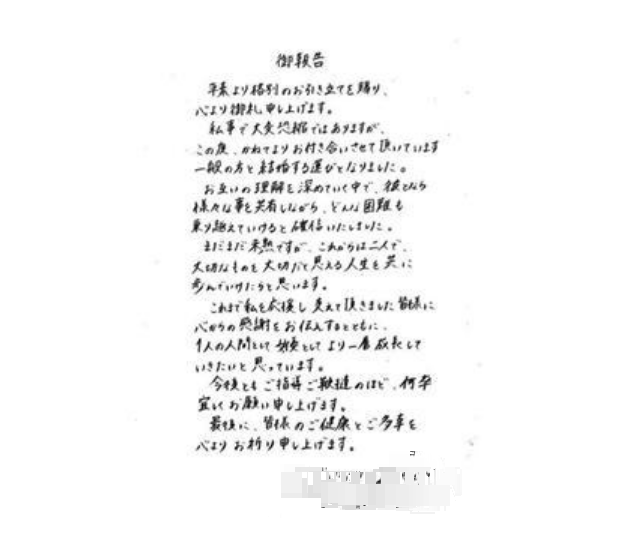 御報告
平素より格別のお引き立てを賜り、
心より御礼申し上げます。
私事で大変恐縮ではありますが、
この度、かねてよりお付き合いさせて頂いています
一般の方と結婚する運びとなりました。
お互いの理解を深めていく中で、彼となら
様々な事を共有しながら、どんな困難も
乗り越えていけると確信いたしました。
まだまだ未熟ですが、これからは二人で、
大切なものを大切だと思える人生を共に
歩んでいけたらと思います。
これまで私を応援し支えて頂きました皆様に
心からの感謝をお伝えするとともに、
1人の人間として女優としてより一層成長して
いきたいと思っています。
今後ともご指導ご鞭撻のほど、何卒
宜しくお願い申し上げます。
最後に、皆様のご健康とご多幸を
心よりお祈り申し上げます。